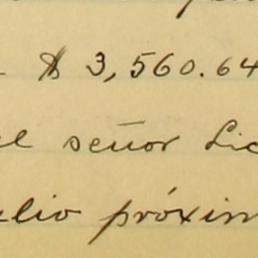 $ 3,560.64
el señor Lic
ulio próxim